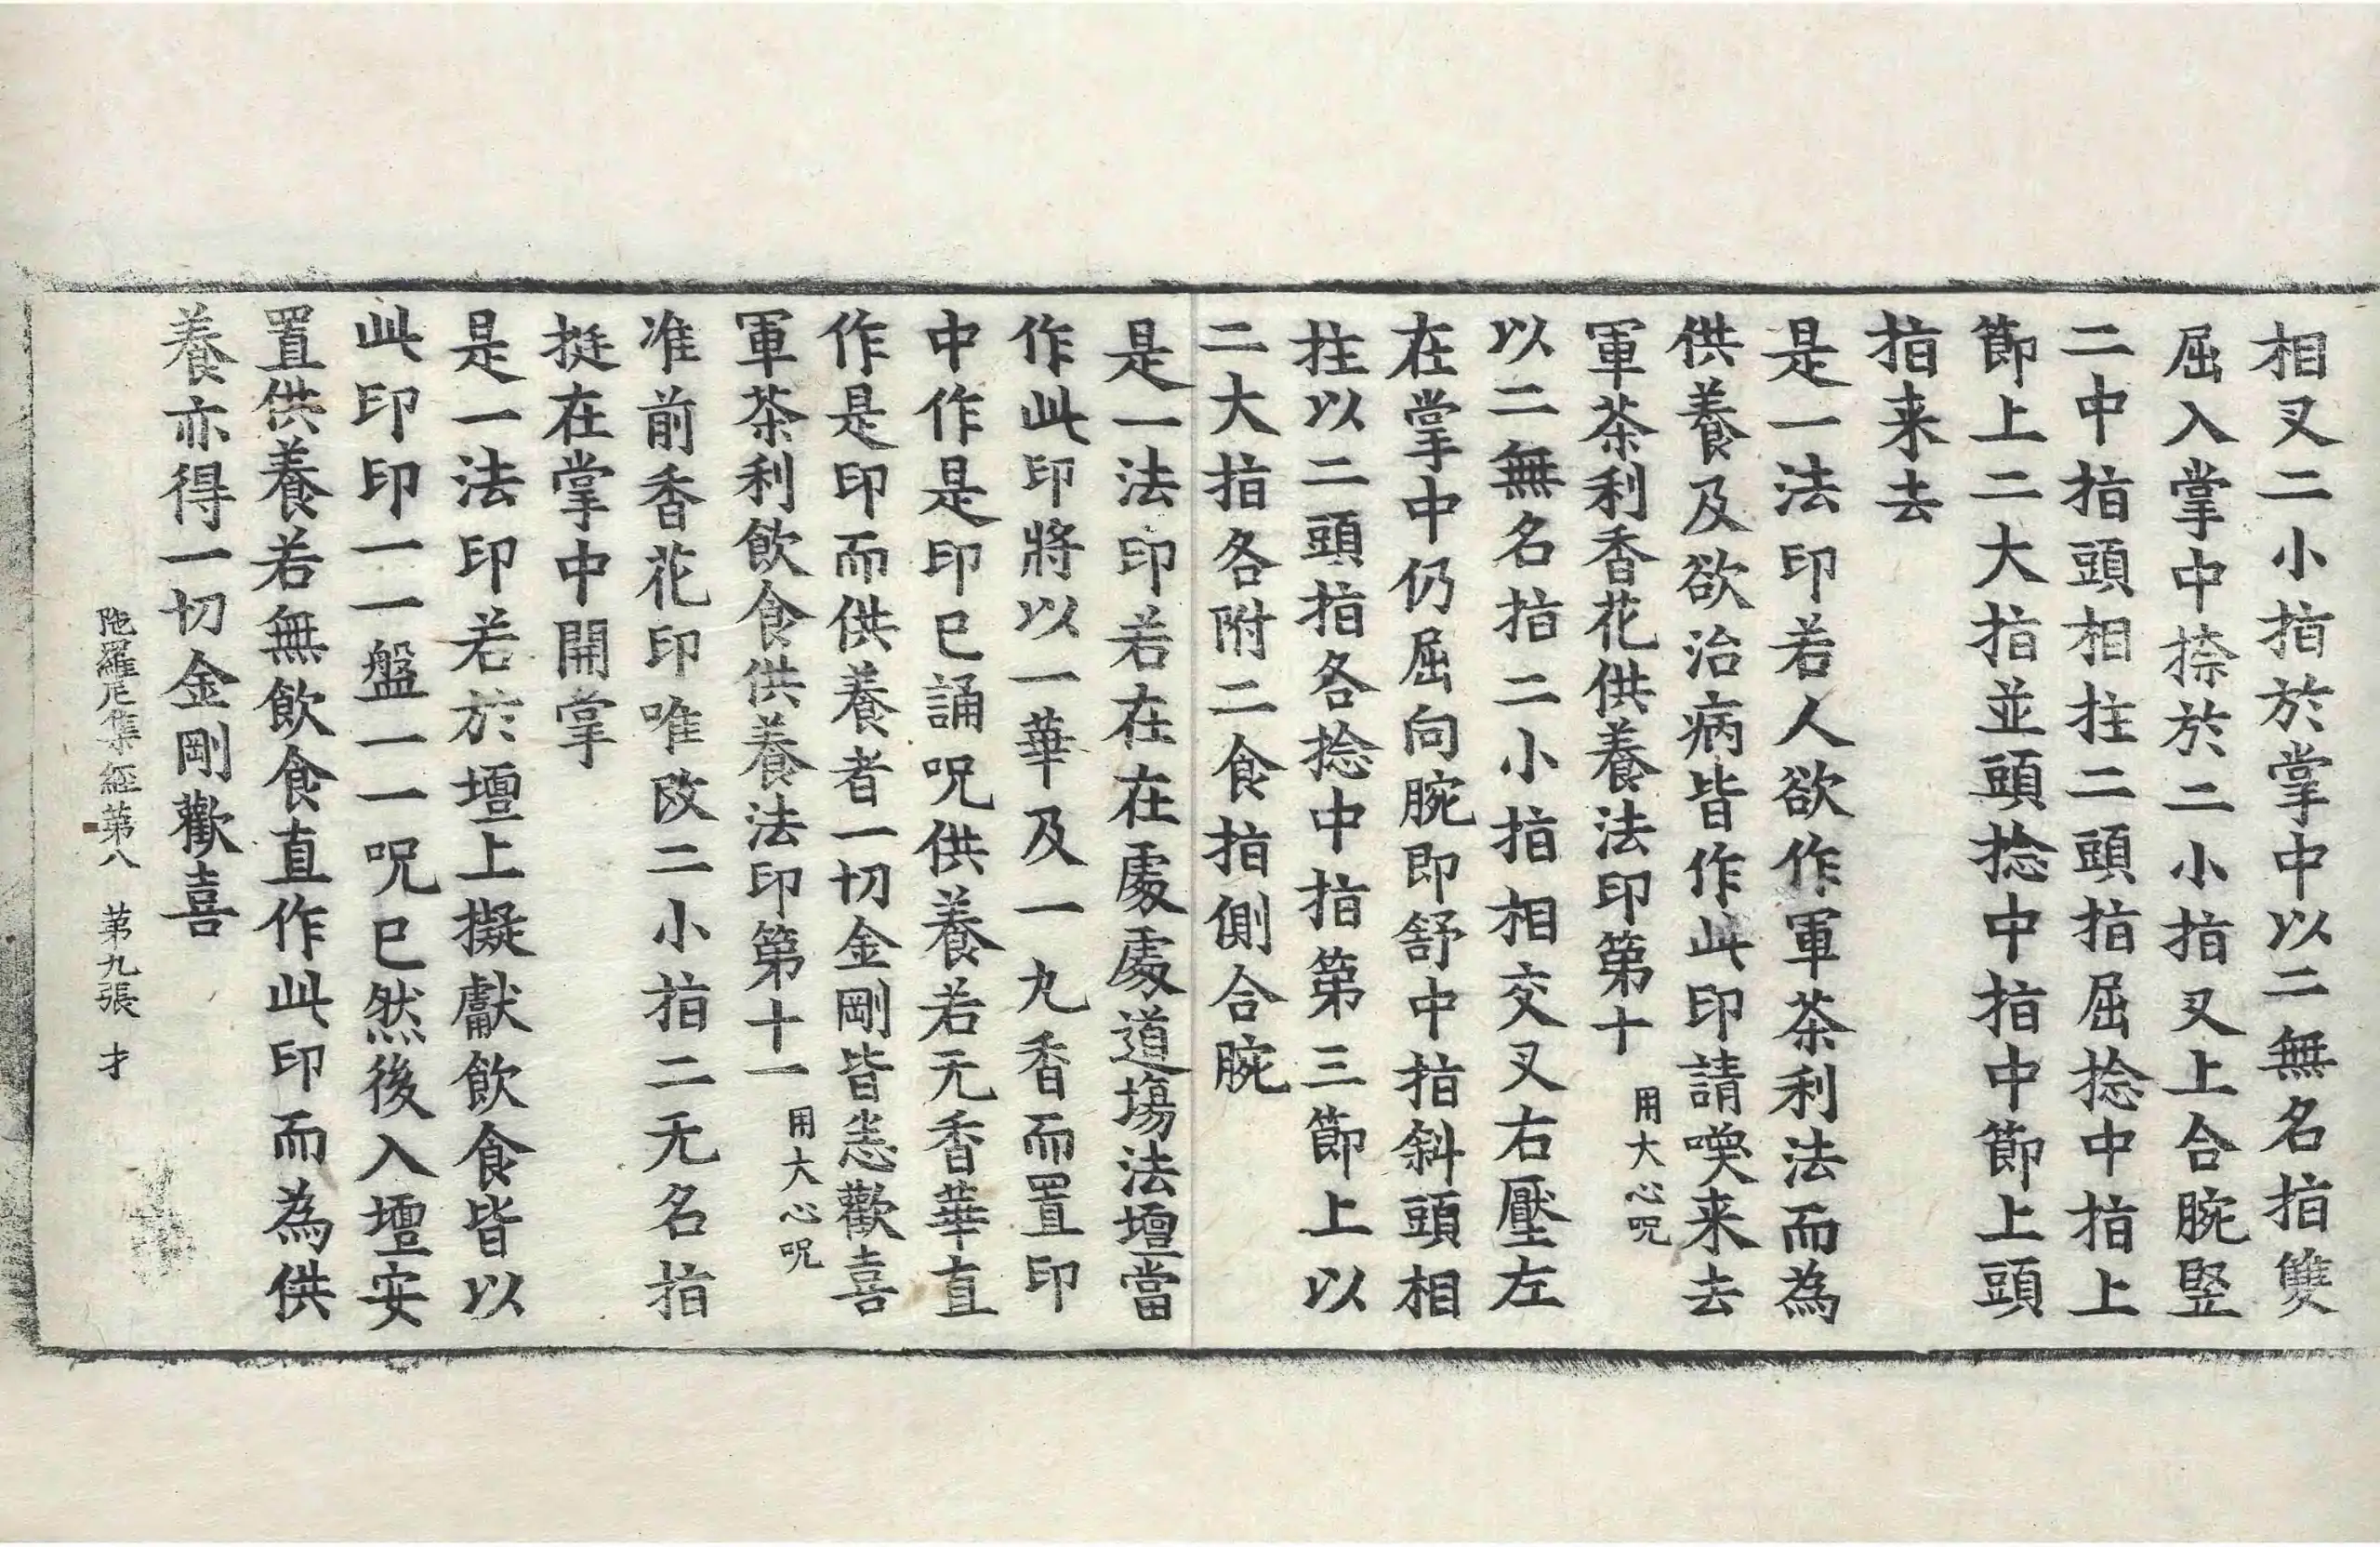 相叉二小指於掌中以二無名指雙
屈入掌中捺於二小指叉上合腕竪
二中指頭相拄二頭指屈捻中指上
節上二大指並頭捻中指中節上頭
指来去
是一法印若人欲作軍茶利法而為
供養及欲治病皆作此印請喚来去
軍茶利香花供養法印第十 用大心呪
以二無名指二小指相交叉右壓左
在掌中仍屈向腕即舒中指斜頭相
拄以二頭指各捻中指第三節上以
二大指各附二食指側合腕
是一法印若在在處處道塲法壇當
作此印將以一華及一九香而置印
中作是印已誦呪供養若无香華直
作是印而供養者一切金剛皆悉歡喜
軍茶利飲食供養法印第十一 用大心呪
准前香花印唯改二小指二无名指
挺在掌中開掌
是一法印若於壇上擬獻飲食皆以
此印印一一盤一一呪已然後入壇安
置供養若無飲食直作此印而為供
養亦得一切金剛歡喜
陁羅尼集經第八 苐九張 才